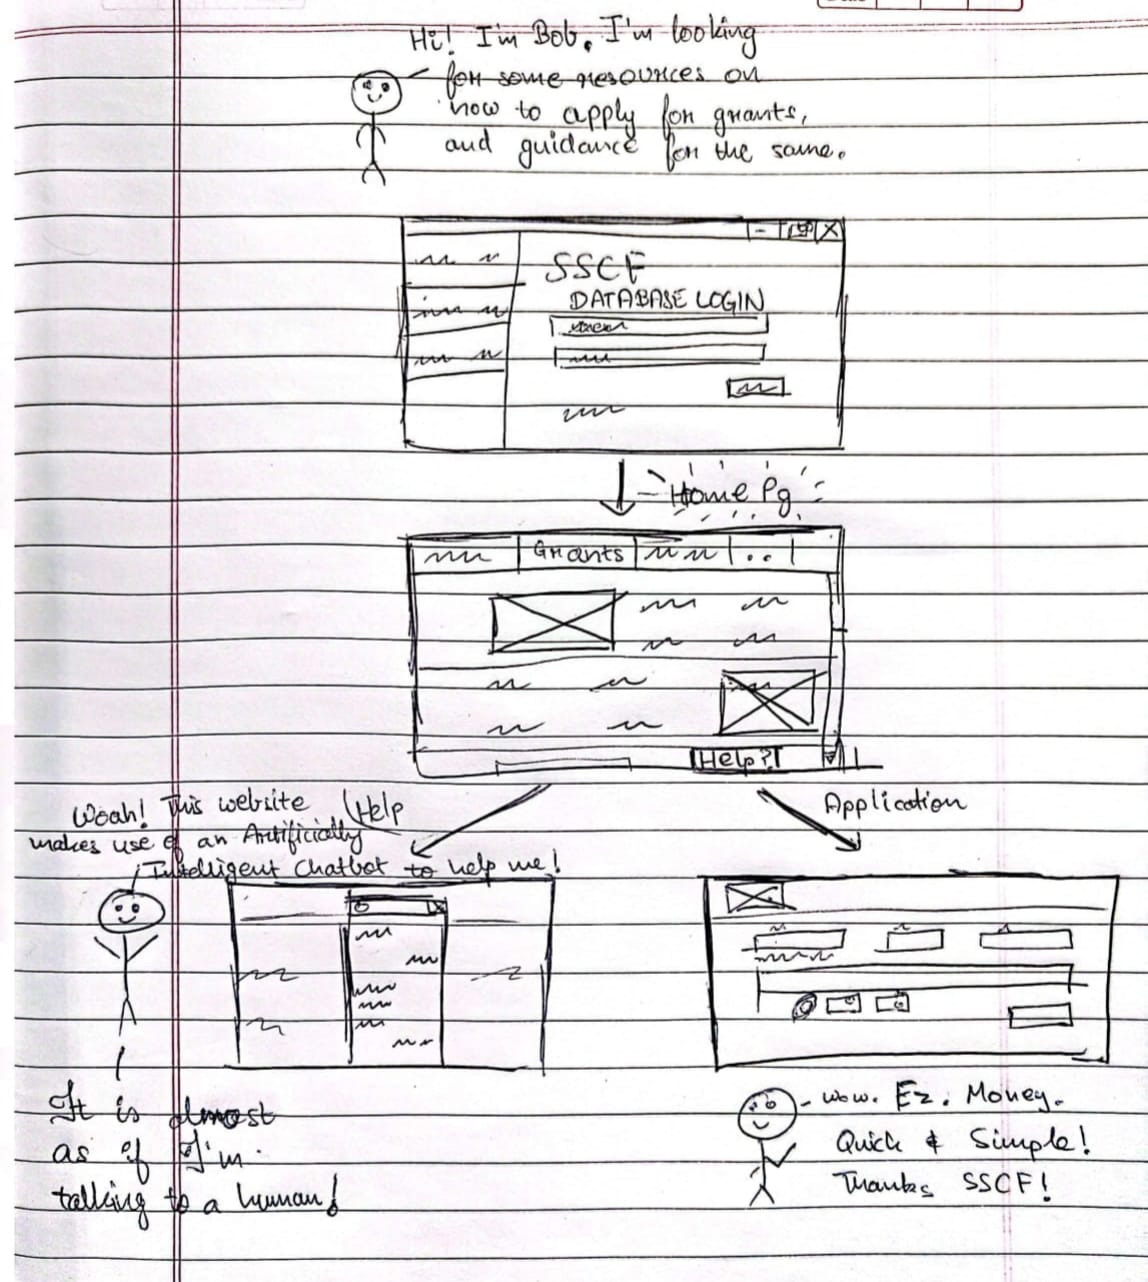 Hi! I'm Bob. I'm looking
for some resources on
how to apply for grants,
and guidance for the same.
SSCF
DATABASE LOGIN
Home Pg
Grants
Help?
Help
Application
Woah! This website
makes use of an Artificially
Intelligent Chatbot to help me!
It is almost
as if I'm
talking to a human!
Wow. Ez. Money.
Quick & Simple!
Thanks SSCF!